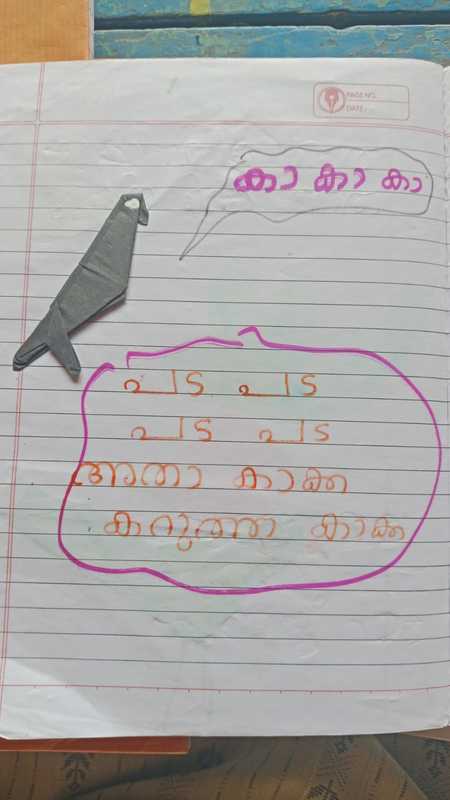 PAGE NO.:
DATE:
കാ കാ കാ
പട പട
പട പട
അതാ കാക്ക
കറുത്ത കാക്ക